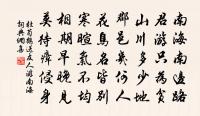 南海南邊路
君游只為貧
山川多少地
郡邑幾何人
花鳥名皆別
寒暄氣不均
相期早晚見
莫待瘴侵身
杜荀鶴送友人游南海
詞典網書